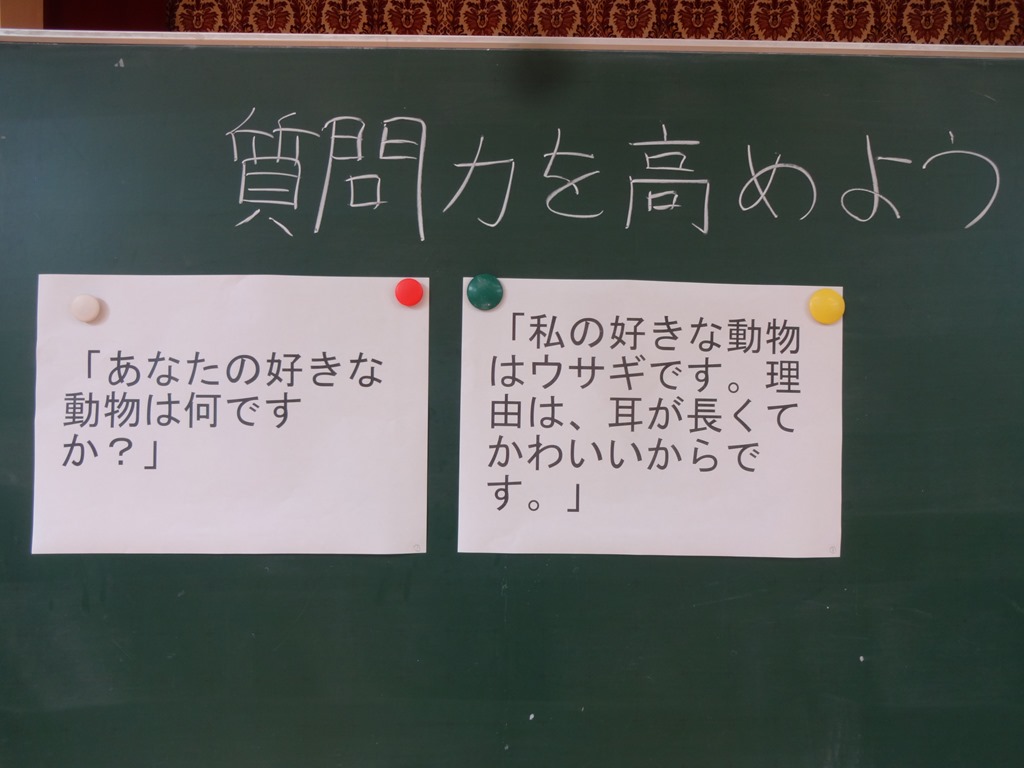 質問力を高めよう
「あなたの好きな
動物は何です
か？」
「私の好きな動物
はウサギです。理
由は、耳が長くて
かわいいからで
す。」